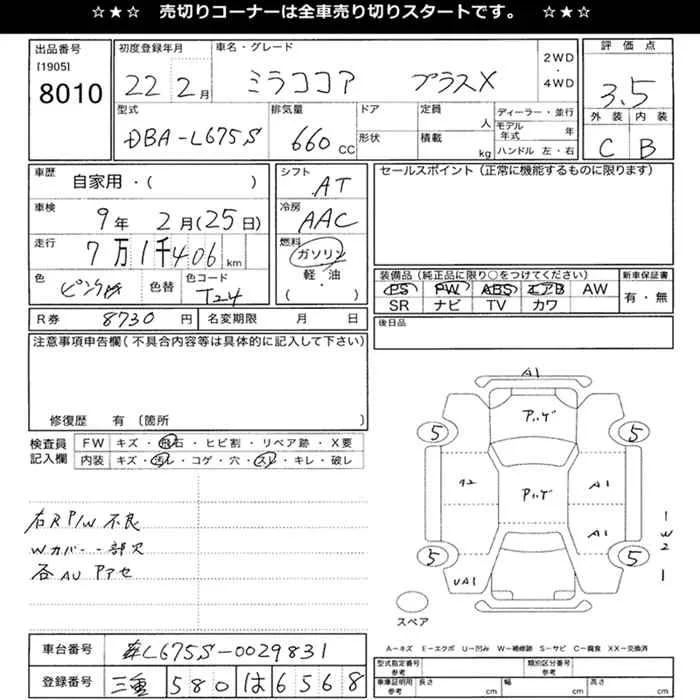 ☆★☆ 売切りコーナーは全車売り切りスタートです。 ☆★☆
出品番号
[1905]
8010
初度登録年月
22年 2月
車名・グレード
ミラココア プラスX
2WD
・
4WD
評価点
3.5
外装 内装
C B
型式
DBA-L675S
排気量
660 CC
ドア
形状
定員
人
積載
kg
ディーラー・並行
モデル年式 年
ハンドル 左・右
車歴
自家用・( )
シフト
AT
セールスポイント (正常に機能するものに限ります)
車検
9年 2月(25日)
冷房
AAC
走行
7万1千406 km
燃料
ガソリン
軽・油
( )
色
ピンク
色替
色コード
T24
装備品 (純正品に限り○をつけてください)
新車保証書
PS PW ABS エアB AW
有・無
SR ナビ TV カワ
R券 8730 円
名変期限 月 日
後日品
注意事項申告欄(不具合内容等は具体的に記入して下さい)
修復歴 有 (箇所
検査員
記入欄
FW キズ・飛石・ヒビ割・リペア跡・X要
内装 キズ・汚レ・コゲ・穴・スレ・キレ・破レ
右R P/W 不良
Wカバー一部欠
各AU アセ
A1
アハゲ
5 5
A2
アハゲ
A1
A1
5 5
UA1
W2
スペア
A-キズ E-エクボ U-凹み W-補修跡 S-サビ C-腐食 XX-交換済
車台番号
L675S-0029831
登録番号
三重 580 は 6568
型式指定番号
参考
類別区分番号
参考
車庫証明用
参考
長さ cm
幅 cm
高さ cm